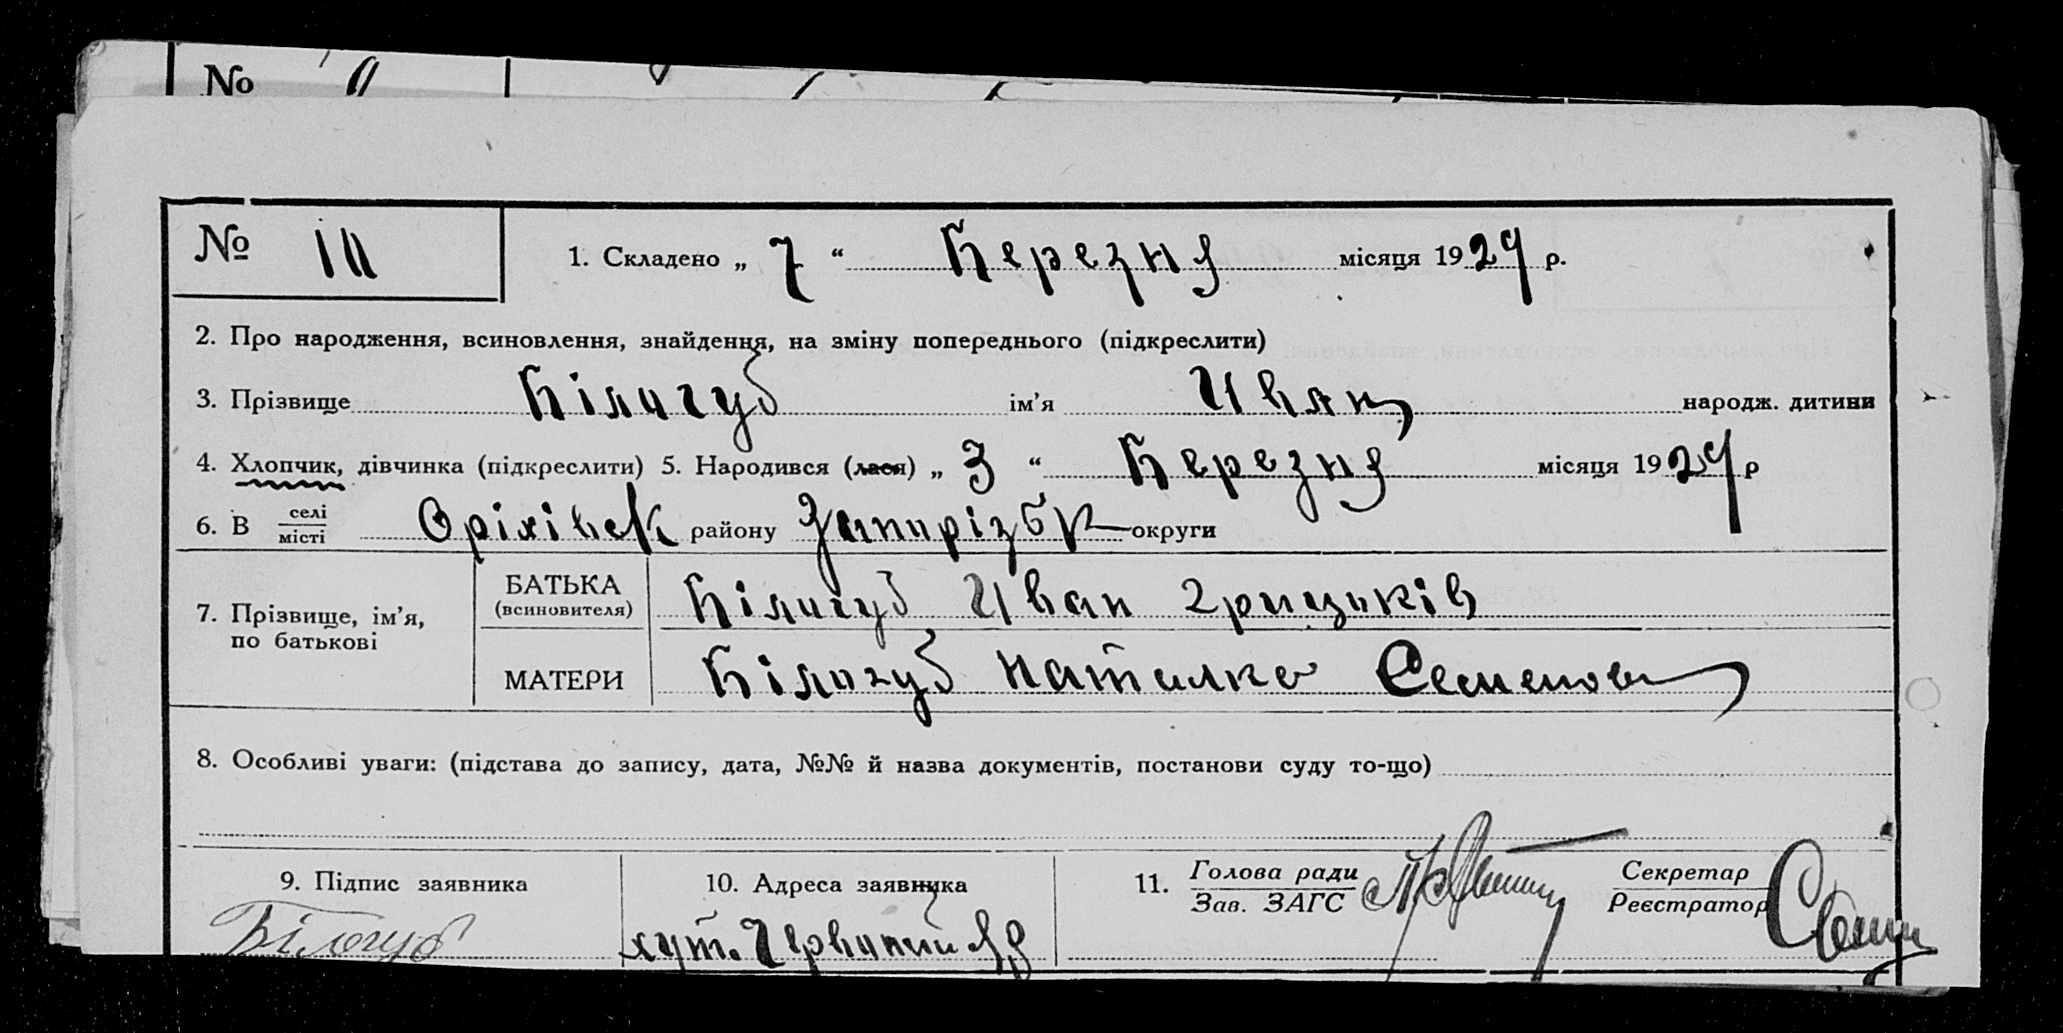 №
№ 10 1. Складено „ 7 “ Березня місяця 1929 р.
2. Про народження, всиновлення, знайдення, на зміну попереднього (підкреслити)
3. Прізвище Білогуб ім’я Иван народж. дитини
4. Хлопчик, дівчинка (підкреслити) 5. Народився (лася) „ 3 “ Березня місяця 1929 р
6. В селі
місті Оріхівськ району Запорізьк округи
7. Прізвище, ім’я,
по батькові
БАТЬКА
(всиновителя) Білогуб Иван Грицьків
МАТЕРИ Білогуб Наталка Семенов
8. Особливі уваги: (підстава до запису, дата, №№ й назва документів, постанови суду то-що)
9. Підпис заявника 10. Адреса заявника 11. Голова ради
Зав. ЗАГС Секретар
Реєстратор
Білогуб хут. Червоний Яр